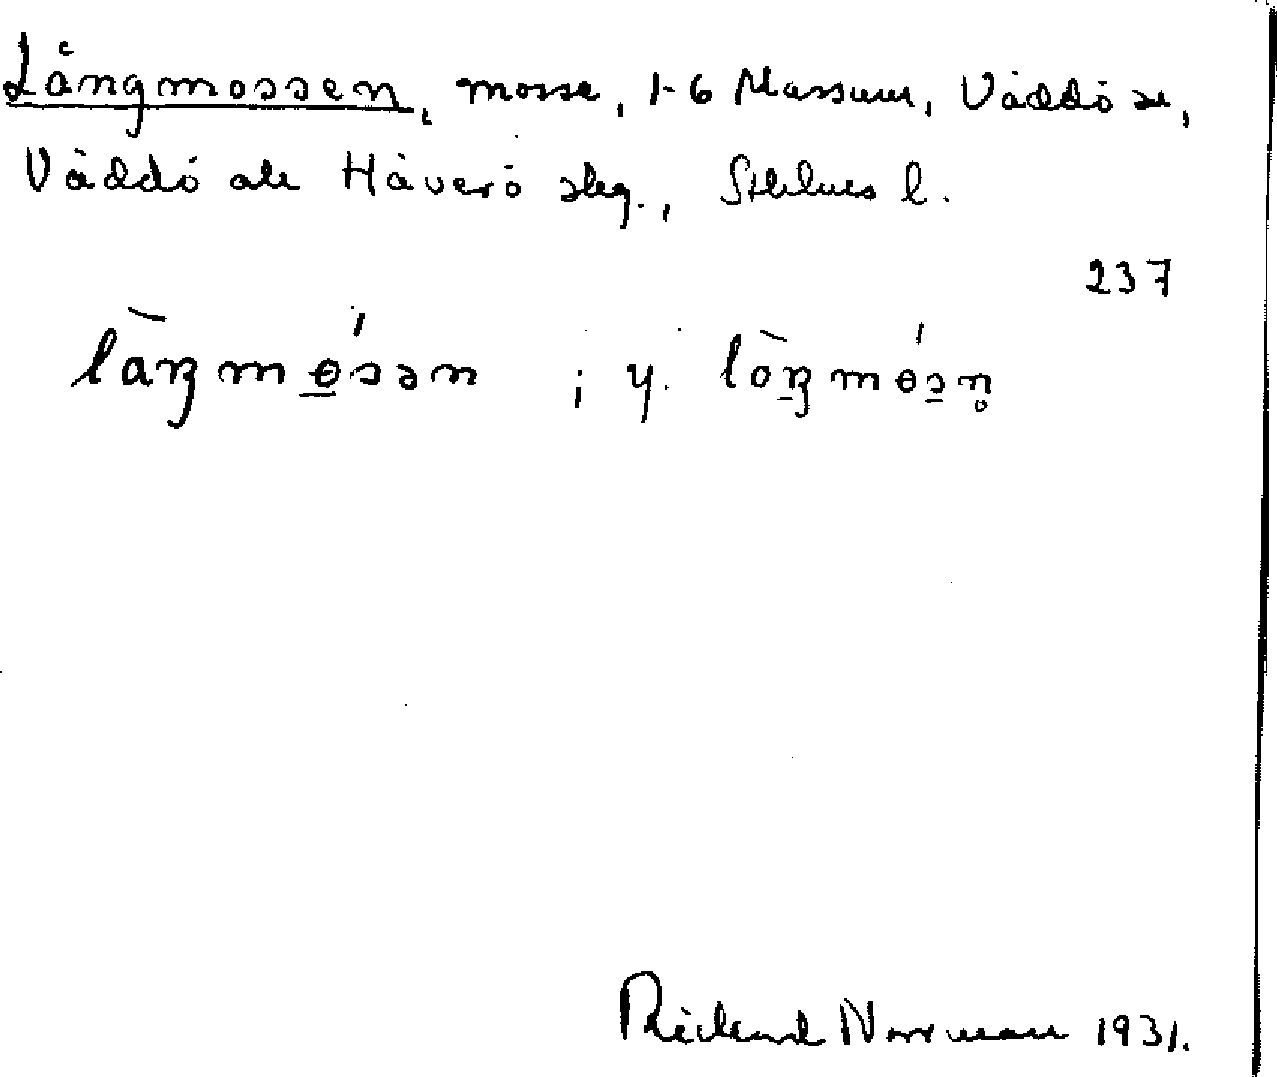 Långmossen, mosse, 1-6 Massum, Väddö sn,
Väddö och Häverö skg., Sthlms l.
237
làŋmɵ́sən ; y. lòŋmɵ́sn̥
Richard Norrman 1931.